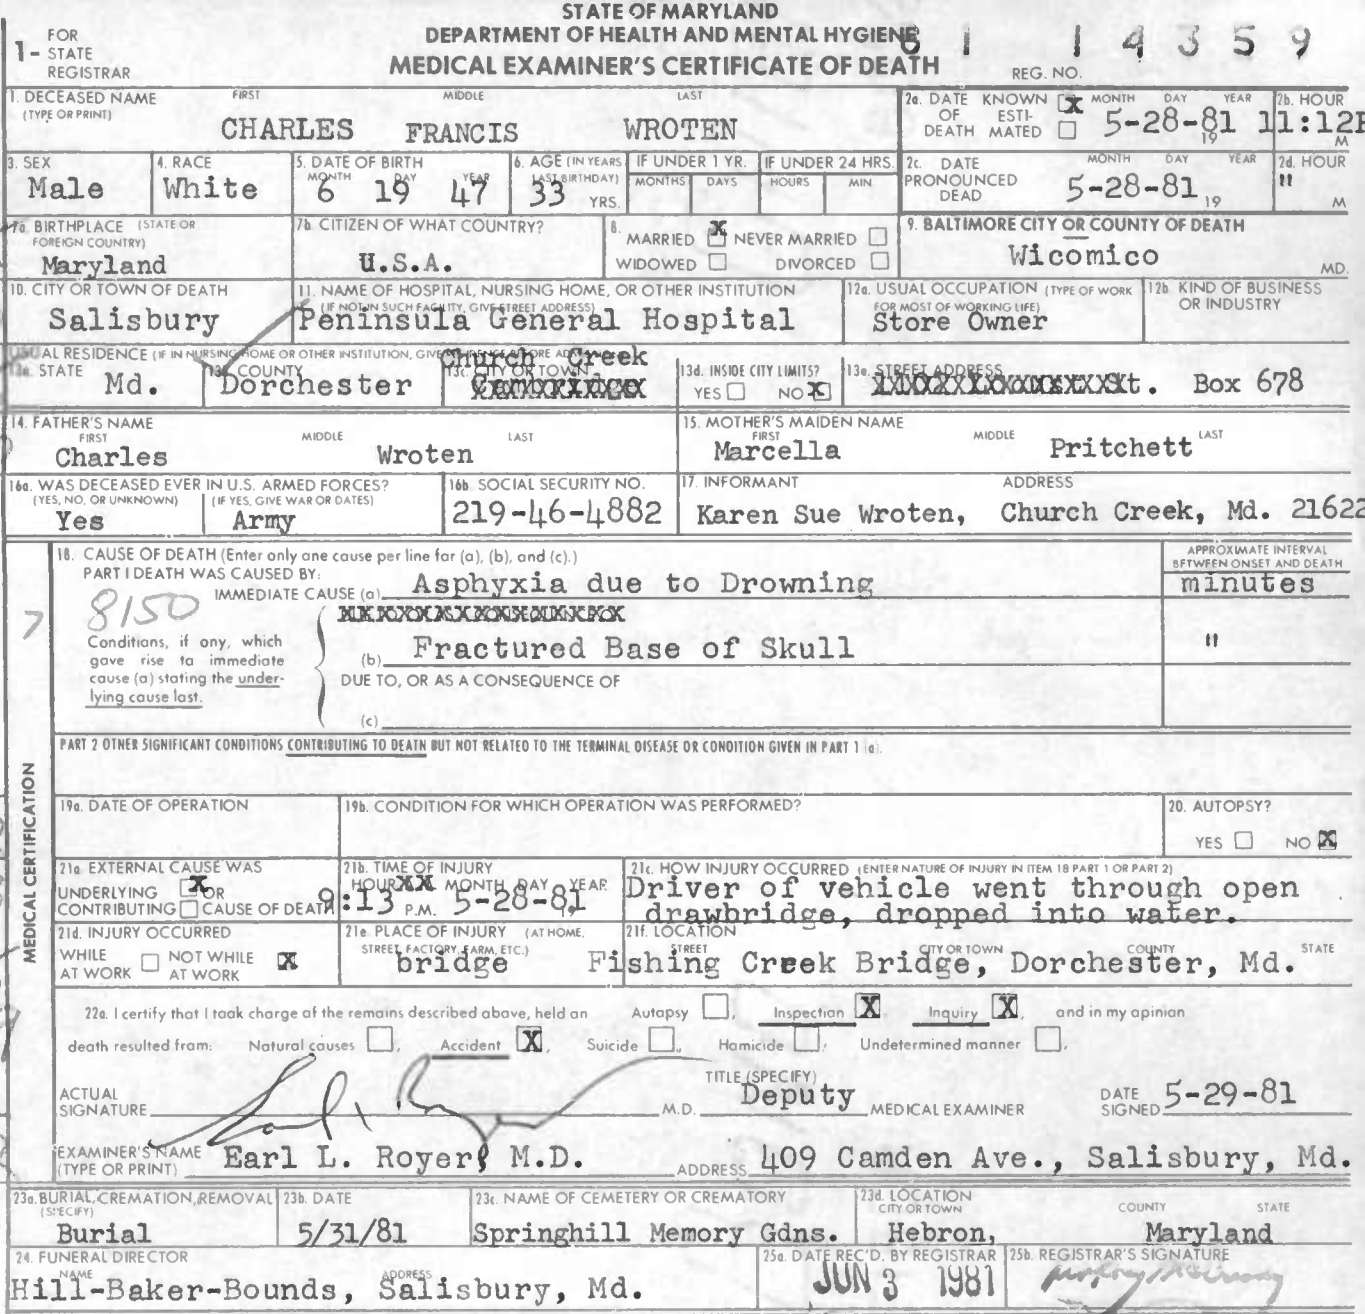 STATE OF MARYLAND
DEPARTMENT OF HEALTH AND MENTAL HYGIENE
MEDICAL EXAMINER'S CERTIFICATE OF DEATH
1- FOR STATE REGISTRAR
REG. NO. 81 14359
1. DECEASED NAME (TYPE OR PRINT) FIRST MIDDLE LAST
CHARLES FRANCIS WROTEN
2a. DATE OF DEATH KNOWN X ESTIMATED MONTH DAY YEAR 5-28-81 19
2b. HOUR 11:12P M
3. SEX Male
4. RACE White
5. DATE OF BIRTH MONTH DAY YEAR 6 19 47
6. AGE (IN YEARS LAST BIRTHDAY) 33 YRS.
IF UNDER 1 YR. MONTHS DAYS
IF UNDER 24 HRS. HOURS MIN
2c. DATE PRONOUNCED DEAD MONTH DAY YEAR 5-28-81 19
2d. HOUR " M
7a. BIRTHPLACE (STATE OR FOREIGN COUNTRY) Maryland
7b. CITIZEN OF WHAT COUNTRY? U.S.A.
8. MARRIED X NEVER MARRIED WIDOWED DIVORCED
9. BALTIMORE CITY OR COUNTY OF DEATH Wicomico MD.
10. CITY OR TOWN OF DEATH Salisbury
11. NAME OF HOSPITAL, NURSING HOME, OR OTHER INSTITUTION (IF NOT IN SUCH FACILITY, GIVE STREET ADDRESS) Peninsula General Hospital
12a. USUAL OCCUPATION (TYPE OF WORK FOR MOST OF WORKING LIFE) Store Owner
12b. KIND OF BUSINESS OR INDUSTRY
USUAL RESIDENCE (IF IN NURSING HOME OR OTHER INSTITUTION, GIVE RESIDENCE BEFORE
13a. STATE Md.
13b. COUNTY Dorchester
13c. CITY OR TOWN Church Creek
13d. INSIDE CITY LIMITS? YES NO X
13e. STREET ADDRESS St. Box 678
14. FATHER'S NAME FIRST MIDDLE LAST
Charles Wroten
15. MOTHER'S MAIDEN NAME FIRST MIDDLE LAST
Marcella Pritchett
16a. WAS DECEASED EVER IN U.S. ARMED FORCES? (YES, NO, OR UNKNOWN) Yes (IF YES, GIVE WAR OR DATES) Army
16b. SOCIAL SECURITY NO. 219-46-4882
17. INFORMANT ADDRESS
Karen Sue Wroten, Church Creek, Md. 21622
MEDICAL CERTIFICATION
18. CAUSE OF DEATH (Enter only one cause per line for (a), (b), and (c).)
APPROXIMATE INTERVAL BETWEEN ONSET AND DEATH
PART I DEATH WAS CAUSED BY:
IMMEDIATE CAUSE (a) Asphyxia due to Drowning minutes
7 8150
Conditions, if any, which gave rise to immediate cause (a) stating the underlying cause last.
(b) Fractured Base of Skull "
DUE TO, OR AS A CONSEQUENCE OF
(c)
PART 2 OTHER SIGNIFICANT CONDITIONS CONTRIBUTING TO DEATH BUT NOT RELATED TO THE TERMINAL DISEASE OR CONDITION GIVEN IN PART 1 (a).
19a. DATE OF OPERATION
19b. CONDITION FOR WHICH OPERATION WAS PERFORMED?
20. AUTOPSY? YES NO X
21a. EXTERNAL CAUSE WAS UNDERLYING X OR CONTRIBUTING CAUSE OF DEATH
21b. TIME OF INJURY HOUR XX MONTH DAY YEAR 9:13 P.M. 5-28-81
21c. HOW INJURY OCCURRED (ENTER NATURE OF INJURY IN ITEM 18 PART 1 OR PART 2)
Driver of vehicle went through open
drawbridge, dropped into water.
21d. INJURY OCCURRED WHILE AT WORK NOT WHILE AT WORK X
21e. PLACE OF INJURY (AT HOME, STREET, FACTORY, FARM, ETC.) bridge
21f. LOCATION STREET CITY OR TOWN COUNTY STATE
Fishing Creek Bridge, Dorchester, Md.
22a. I certify that I took charge of the remains described above, held an Autopsy , Inspection X Inquiry X, and in my opinion
death resulted from: Natural causes , Accident X, Suicide , Homicide , Undetermined manner .
ACTUAL SIGNATURE Earl L. Royer M.D.
TITLE (SPECIFY) Deputy MEDICAL EXAMINER
DATE SIGNED 5-29-81
EXAMINER'S NAME (TYPE OR PRINT) Earl L. Royer, M.D.
ADDRESS 409 Camden Ave., Salisbury, Md.
23a. BURIAL, CREMATION, REMOVAL (SPECIFY) Burial
23b. DATE 5/31/81
23c. NAME OF CEMETERY OR CREMATORY Springhill Memory Gdns.
23d. LOCATION CITY OR TOWN COUNTY STATE
Hebron, Maryland
24. FUNERAL DIRECTOR NAME ADDRESS
Hill-Baker-Bounds, Salisbury, Md.
25a. DATE REC'D. BY REGISTRAR JUN 3 1981
25b. REGISTRAR'S SIGNATURE